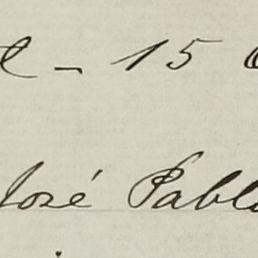 - 15
José Pabl